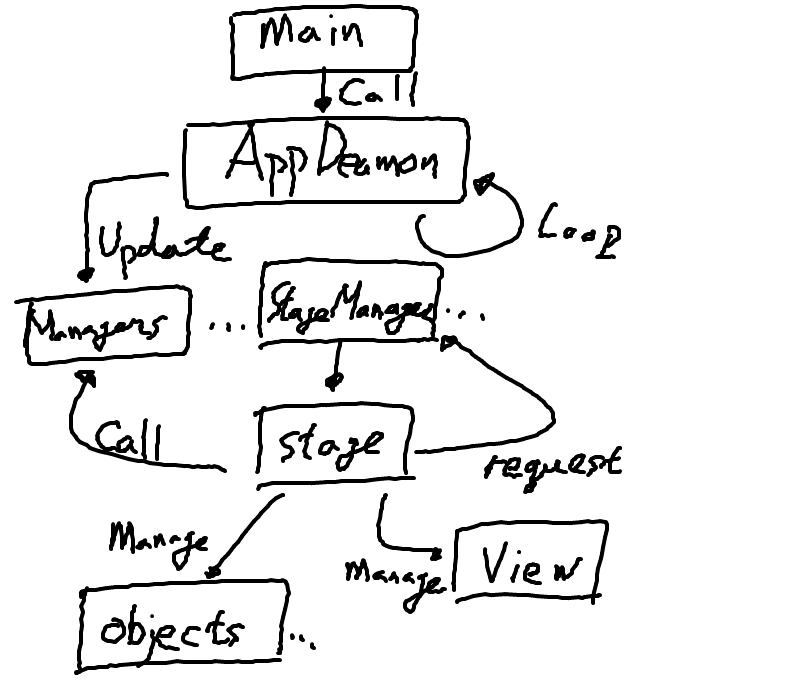 Main
Call
AppDeamon
Loop
Update
Managers ... StageManager ...
Call
stage
request
Manage
Manage
View
objects ...